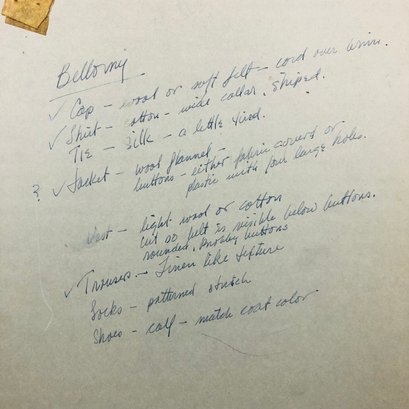 Bellomy
✓ Cap - wool or soft felt - cord over brim.
✓ Shirt - cotton - wide collar, striped.
Tie - silk - a little tied.
? ✓ Jacket - wool flannel -
buttons - either fabric covered or
plastic with four large holes.
Vest - light wool or cotton
cut so belt is visible below buttons.
rounded, knobby buttons
✓ Trousers - Linen like texture
Socks - patterned stretch
Shoes - calf - match coat color